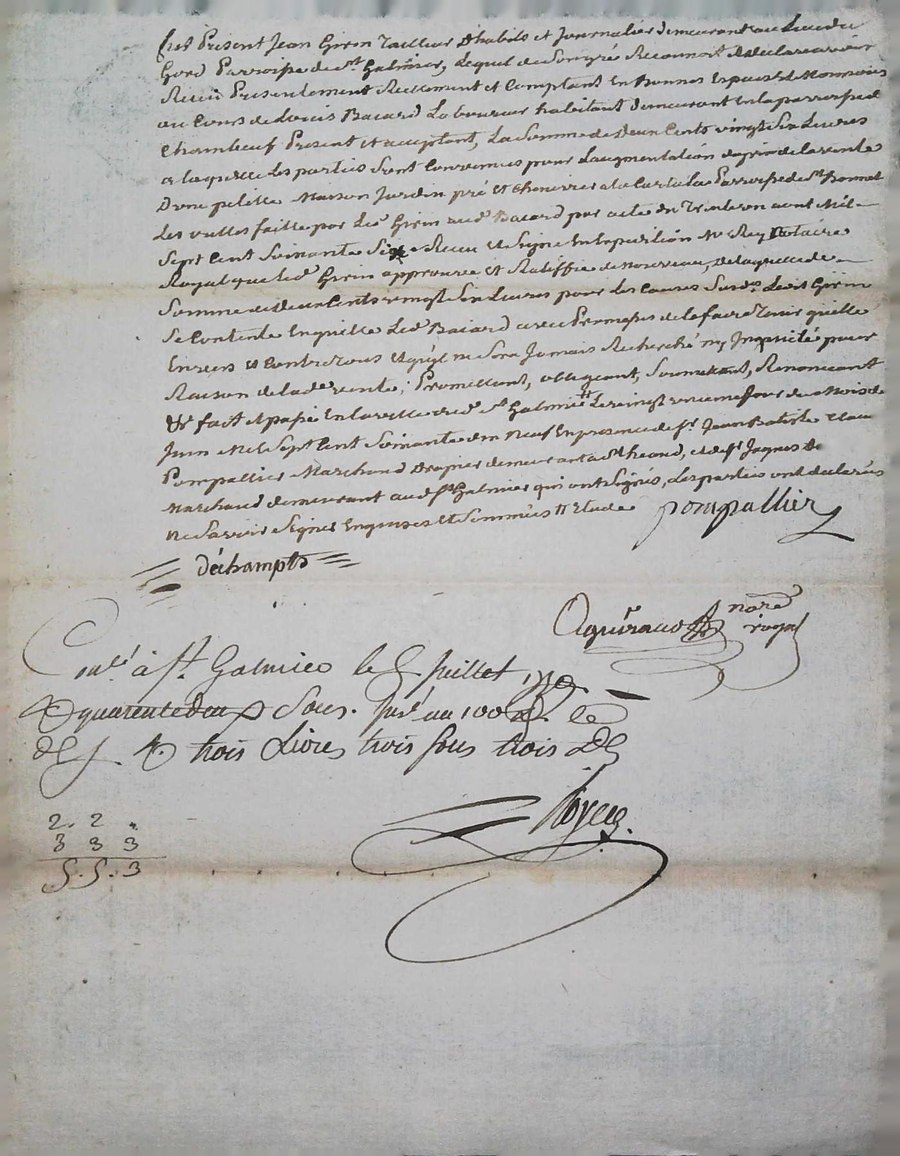 fut Present Jean Girin Tailleur D'habits et Journalier demeurant au Lieu du
Gord Parroisse de st Galmier, Lequel de Son gré Reconnoit et declare avoir
Recu Presentement Reellement et Comptant En bonnes Especes et Monnoies
au Cours de Louis Bacard Laboureur habitant demeurant En la parroisse de
Chambeuf Present et acceptant, La Somme de Deux Cents vingt Six Livres
a laquelle les parties Sont Convenues pour Laugmentation du prix de la vente
Dune petitte Maison Jardin pré et Chenevier a la Parroisse de st Bonnet
Les oulles faitte par Led Girin aud Bacard par acte du Trente un aout Mil
Sept Cent Soixante Six Recu et Signé En Expedition Me Rey Notaire
Royal que led Girin approuve et Ratiffie de nouveau, de laquelle de
Somme de Deux Cents vingt Six Livres pour les Causes Susd Ledit Girin
Se Contente En quitte Led Bacard avec Promesse de le faire Tenir quitte
Envers et Contre Tous et quil ne Sera Jamais Recherché ny Inquieté pour
Raison de lade vente; Promettant, obligeant, Soumettant, Renonceant
&c fait et passé En la ville dud st Galmier Le vingt Jour du Mois de
Juin Mil Sept Cent Soixante dix Neuf En presence de sr Jean Batiste
Pompallier Marchand Drapier demeurant a st heand, et de sr Jaques De
Marchand demeurant aud st Galmier qui ont Signés, Les parties ont declarées
ne Savoir Signer Enquises et Sommées
pompallier
déchampts
nore
royal
à st Galmier le 5 Juillet 1779
R quarente deux Sous. le
trois Livres trois Sous trois
2. 2 .
3 3 3
5. 5. 3